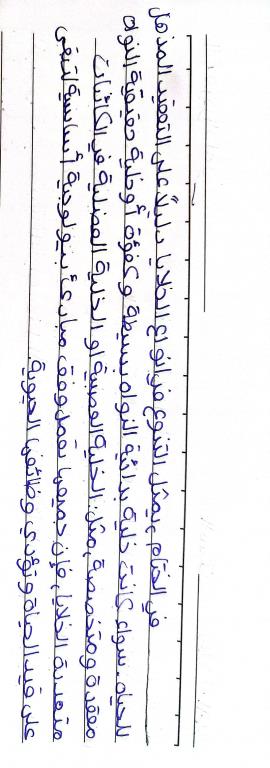 في الختام، يمثل التنوع في انواع الخلايا دليلاً على التعقيد المذهل
للحياه. سواء كانت خلية بدائية النواه بسيطة وكفؤة أو خلية حقيقية النواه
معقدة ومتخصصة، مثل: الخلية العصبية او الخلية العضلية في الكائنات
متعددية الخلايا، فإن جميعها تعمل وفق مبادئ بيولوجية أساسية لتبقى
على قيد الحياة وتؤدي وظائفها الحيوية.